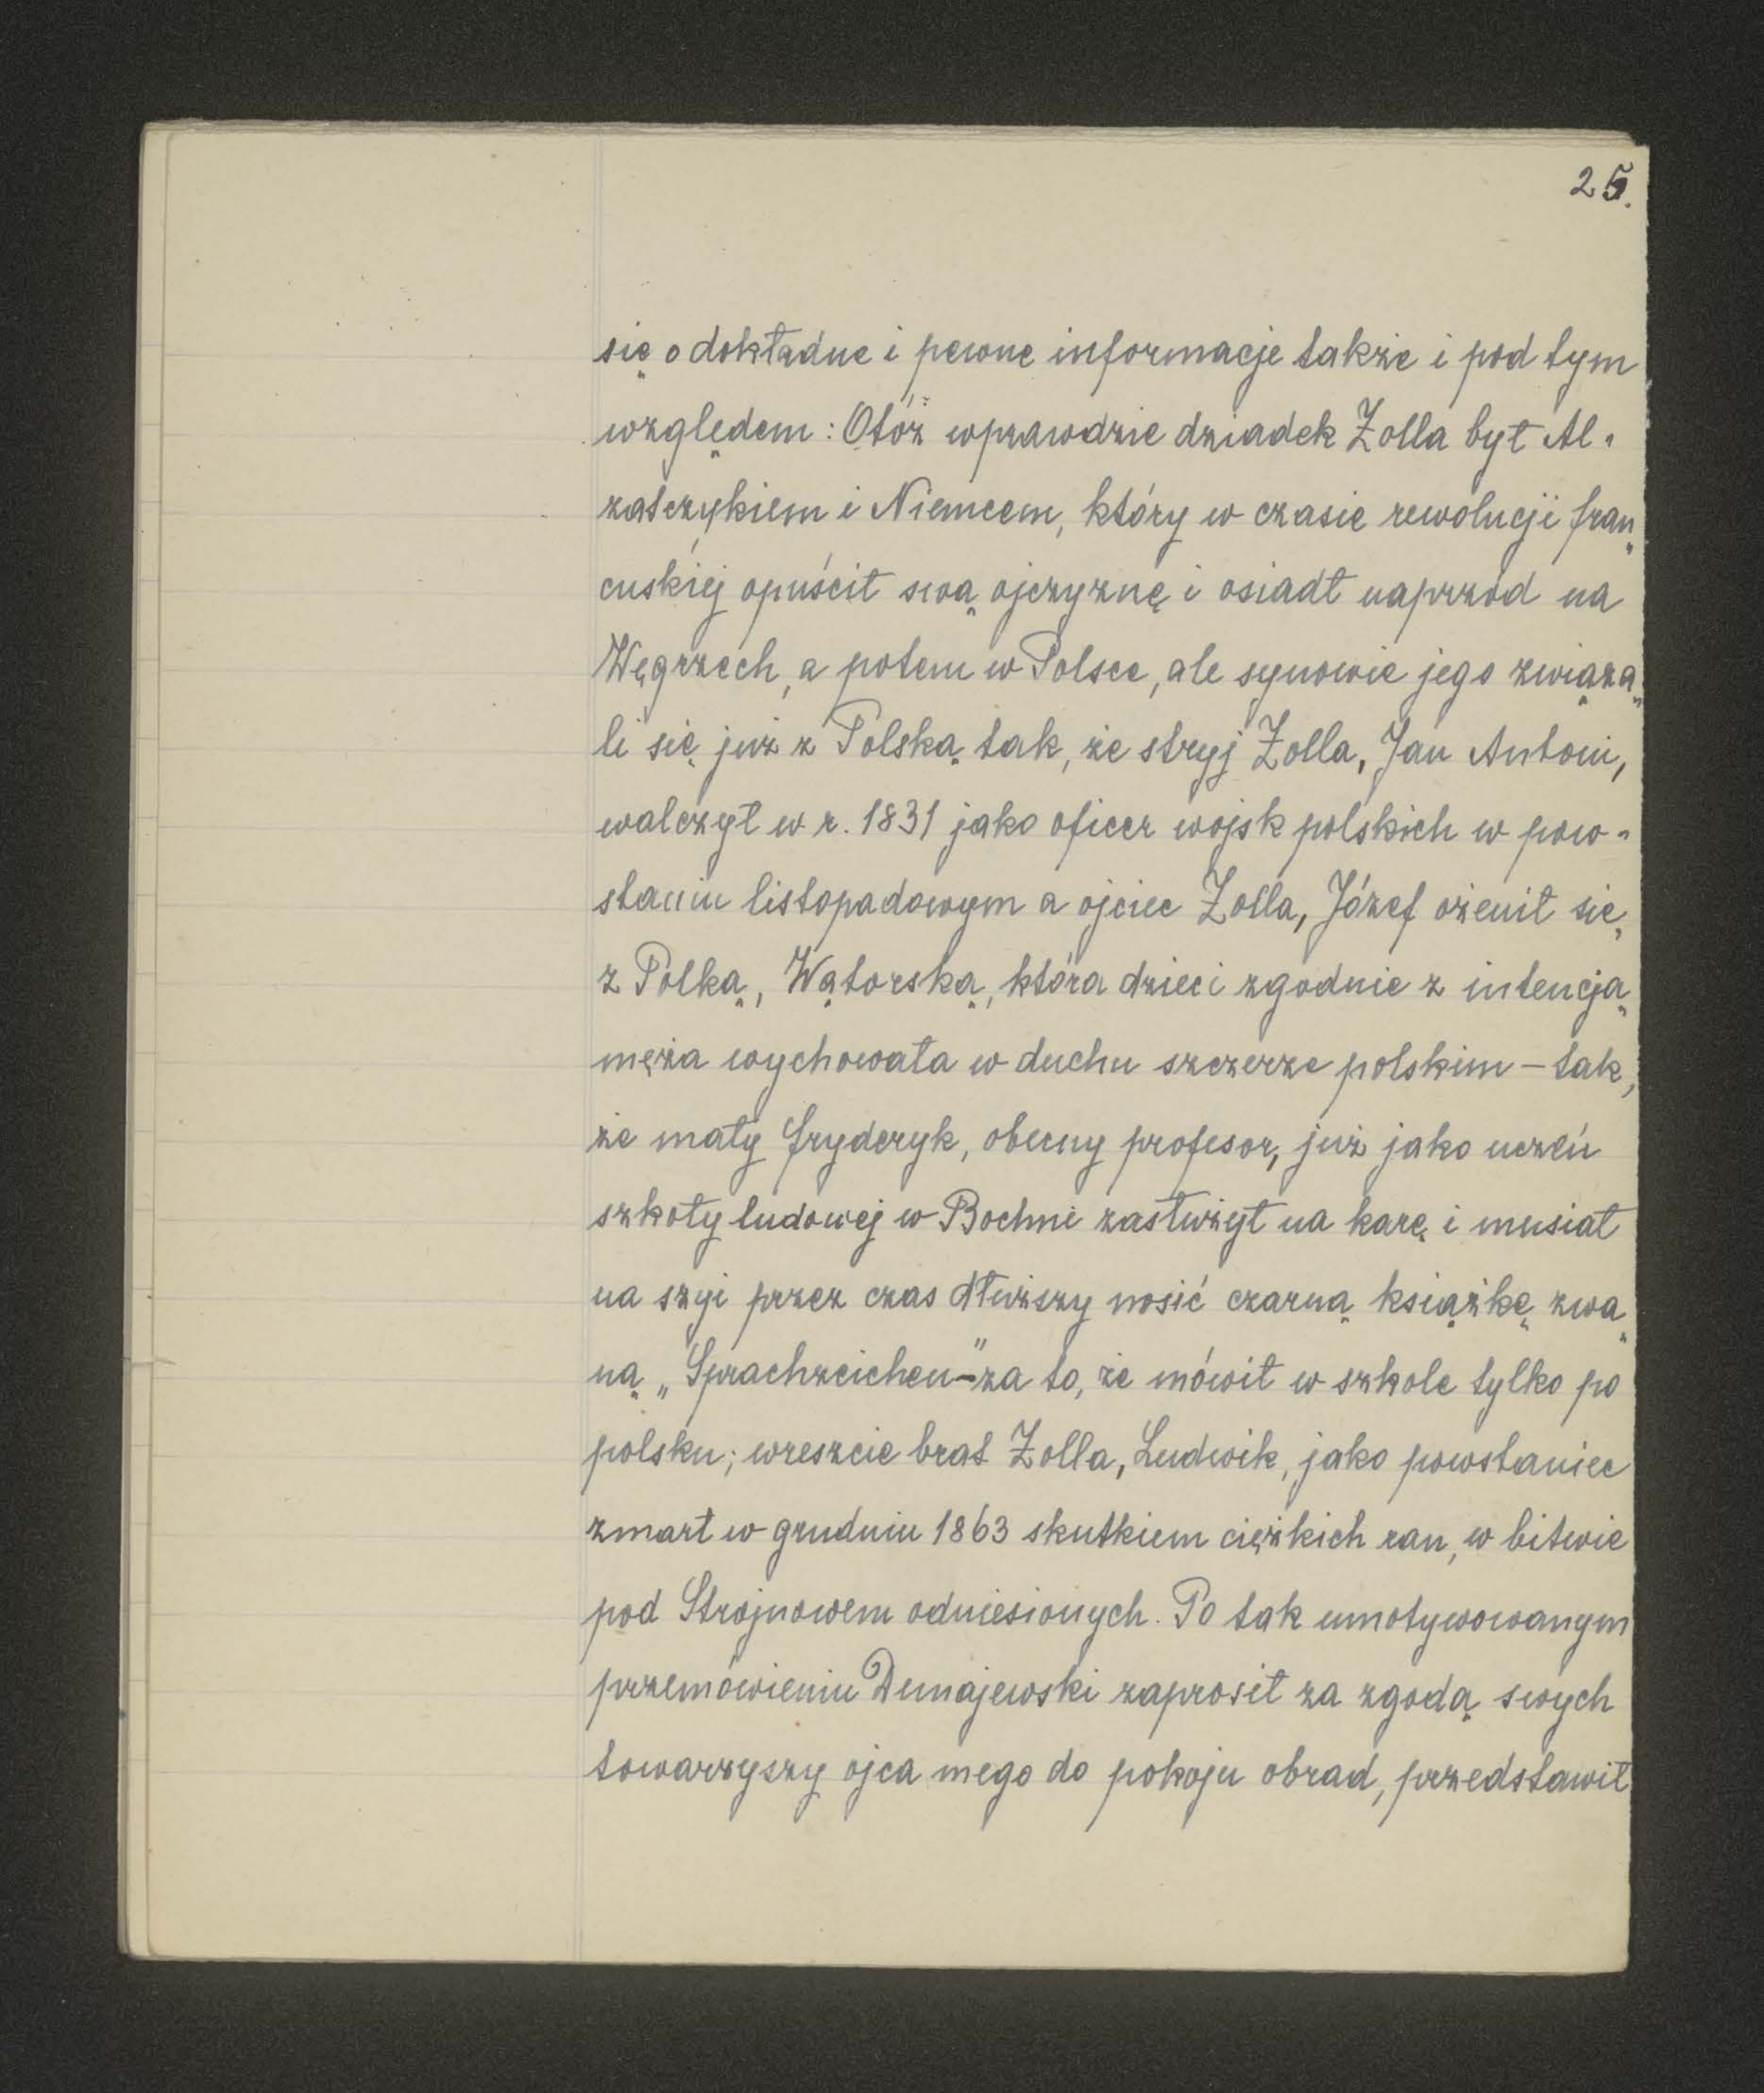 25.
się o dokładne i pewne informacje także i pod tym
względem: Otóż wprawdzie dziadek Zolla był Al-
zatczykiem i Niemcem, który w czasie rewolucji fran
cuskiej opuścił swą ojczyznę i osiadł naprzód na
Węgrzech, a potem w Polsce, ale synowie jego związa
li się już z Polską tak, że stryj Zolla, Jan Antoni,
walczył w r. 1831 jako oficer wojsk polskich w pow-
staniu listopadowym a ojciec Zolla, Józef ożenił się
z Polką, Wątorską, która dzieci zgodnie z intencją
męża wychowała w duchu szczerze polskim – tak,
że mały Fryderyk, obecny profesor, już jako uczeń
szkoły ludowej w Bochni zasłużył na karę i musiał
na szyi przez czas dłuższy nosić czarną książkę zwa
ną „Sprachzeichen"-za to, że mówił w szkole tylko po
polsku; wreszcie brat Zolla, Ludwik, jako powstaniec
zmarł w grudniu 1863 skutkiem ciężkich ran, w bitwie
pod Strojnowem odniesionych. Po tak umotywowanym
przemówieniu Dunajewski zaprosił za zgodą swych
towarzyszy ojca mego do pokoju obrad, przedstawił